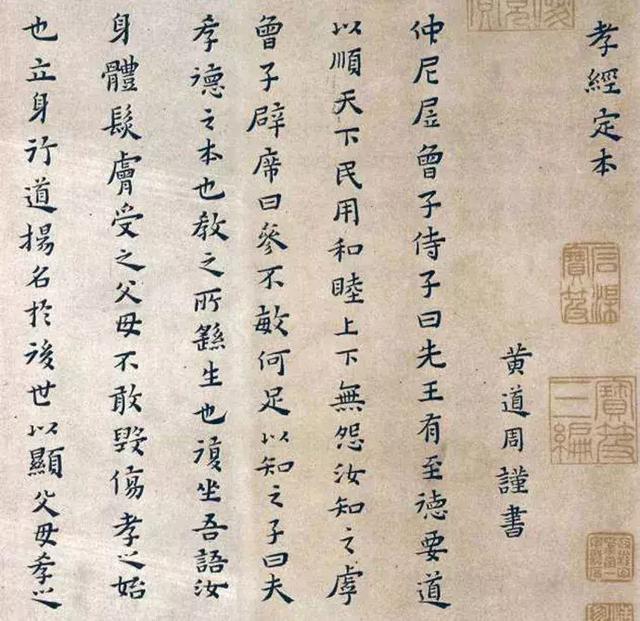 孝經定本
黄道周謹書
仲尼曾子侍子曰先王有至德要道
以順天下民用和睦上下無怨汝知之虖
曾子辟席曰參不敏何足以知之子曰夫
孝德之本也教之所繇生也復坐吾語汝
身體髮膚受之父母不敢毀傷孝之始
也立身行道揚名於後世以顯父母孝之
石渠寶笈
寶笈三編